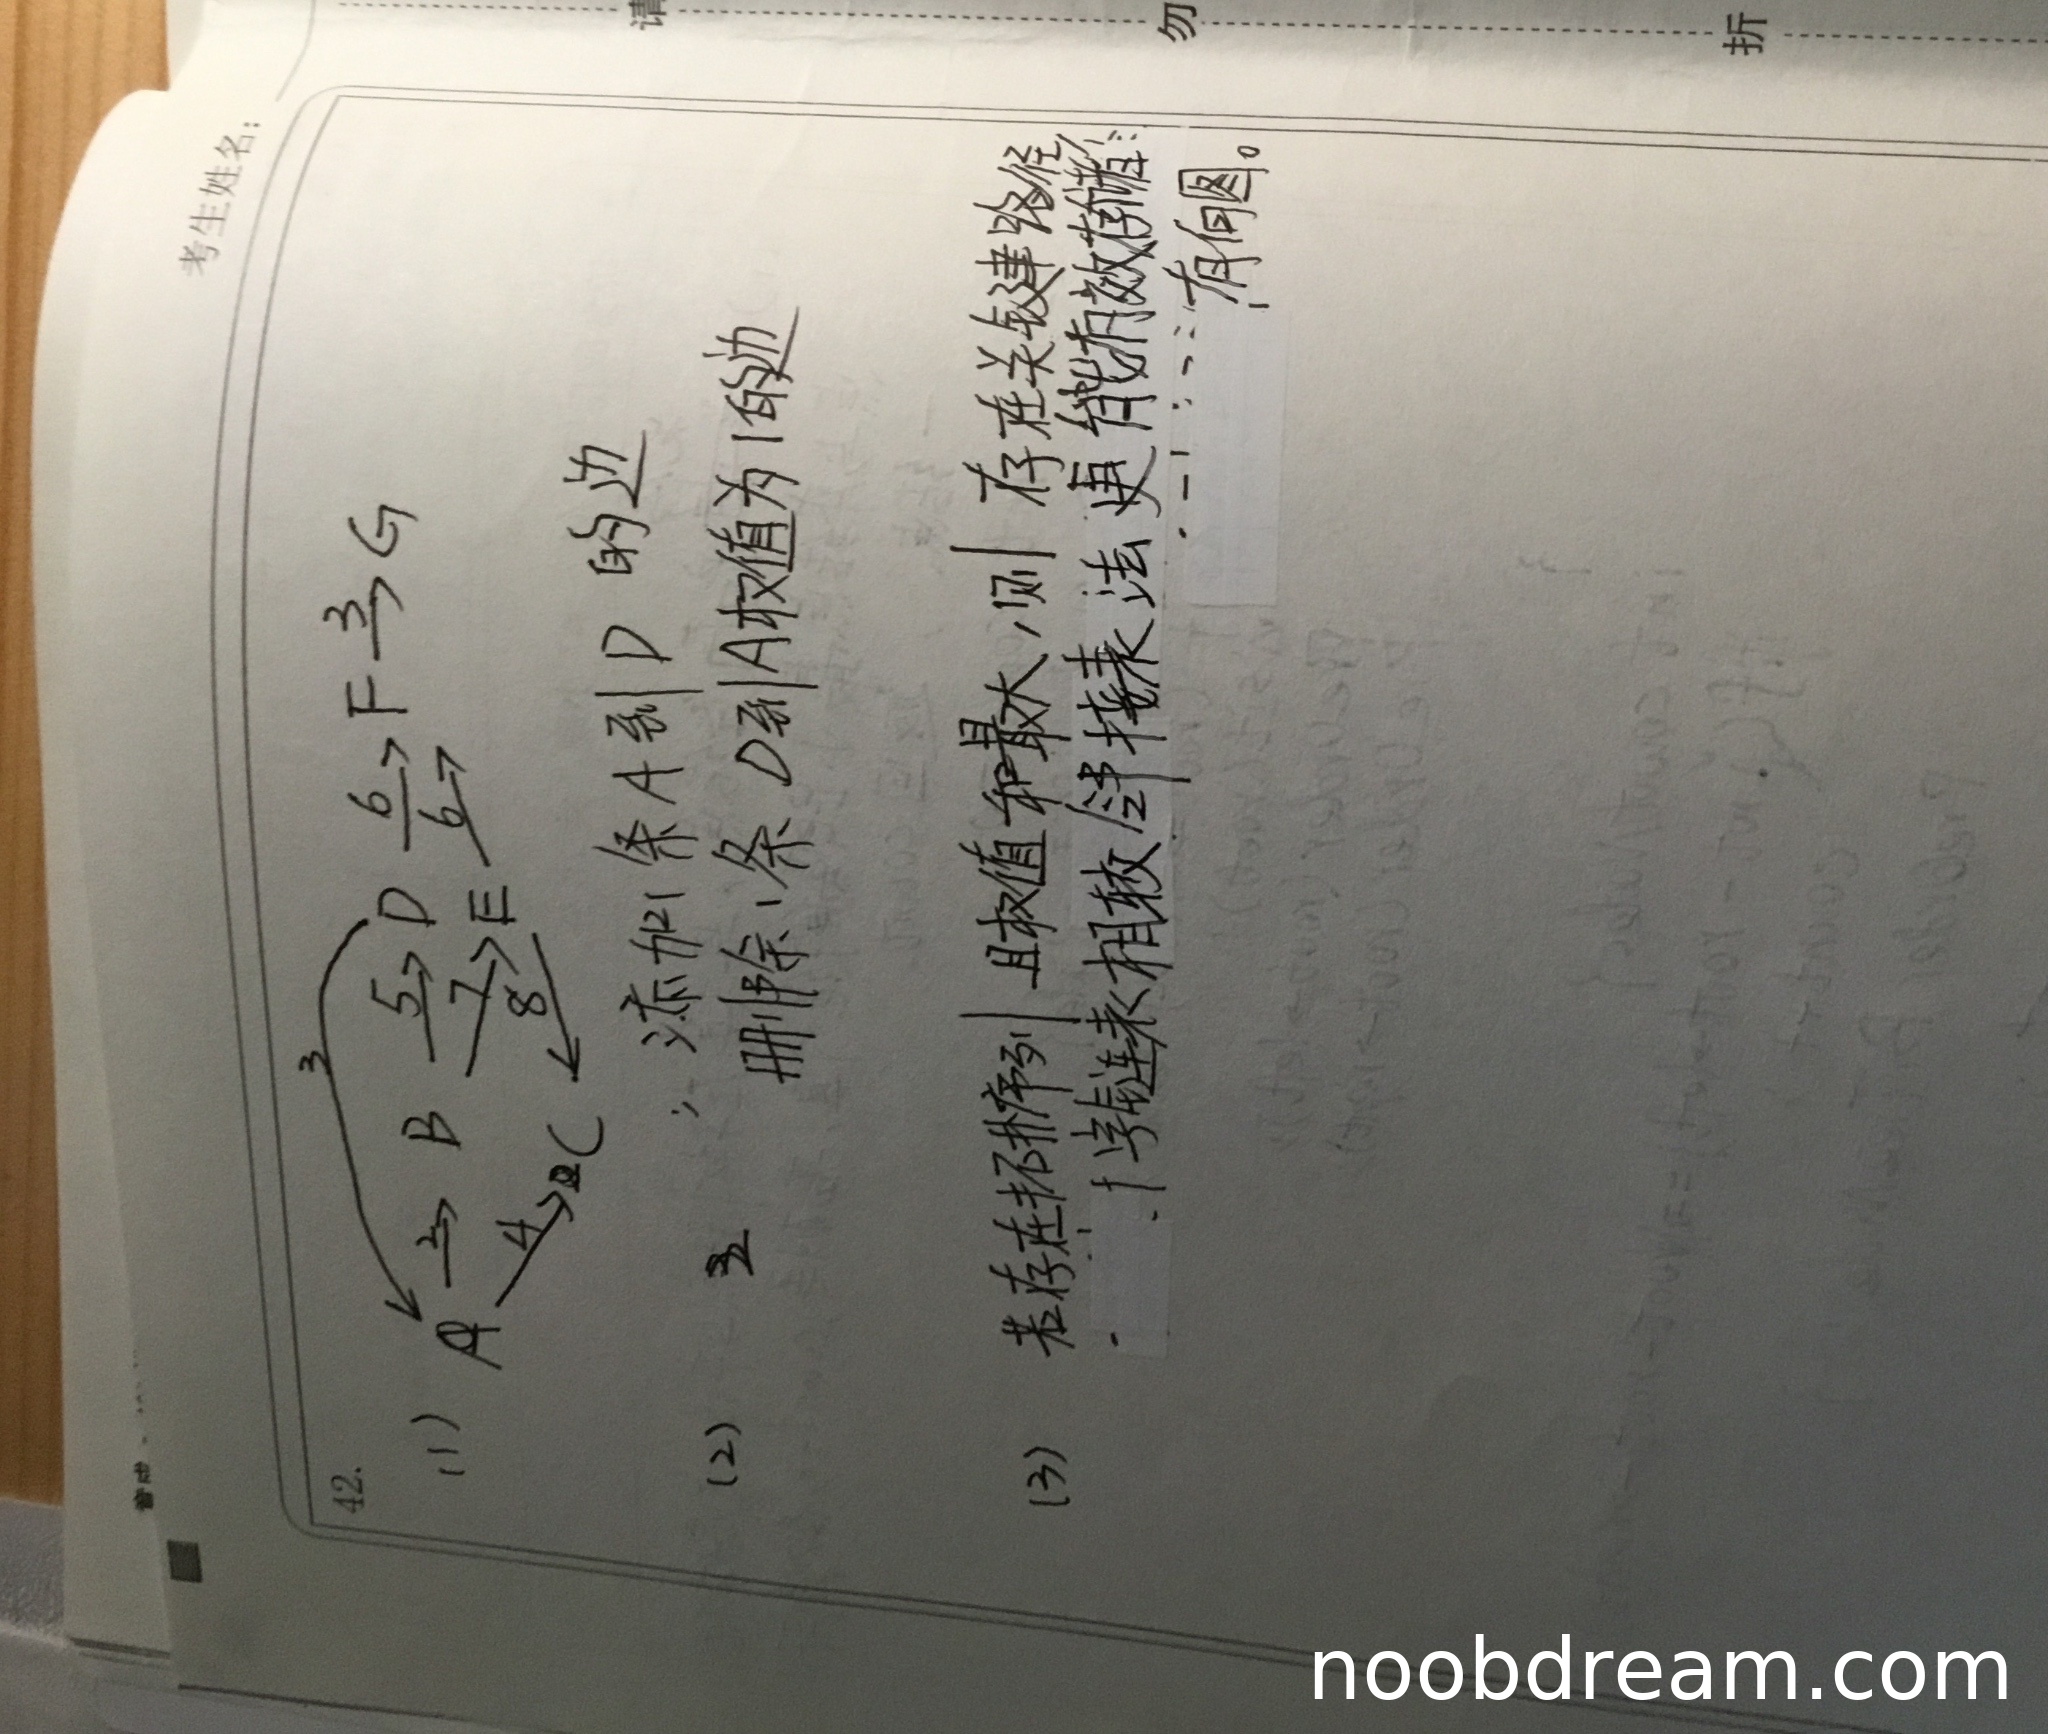 请 勿 折
考生姓名:
42.
(1)
3
A 3 B 5 D 6 F 3 G
7 E 6
4 C 8
添加1条 A到D 的边
(2) 2 删除1条 D到A权值为1的边
(3) 若存在拓扑序列 且权值和最大,则 存在关键路径
十字链表相较邻接表法更能有效存储
有向图。
noobdream.com